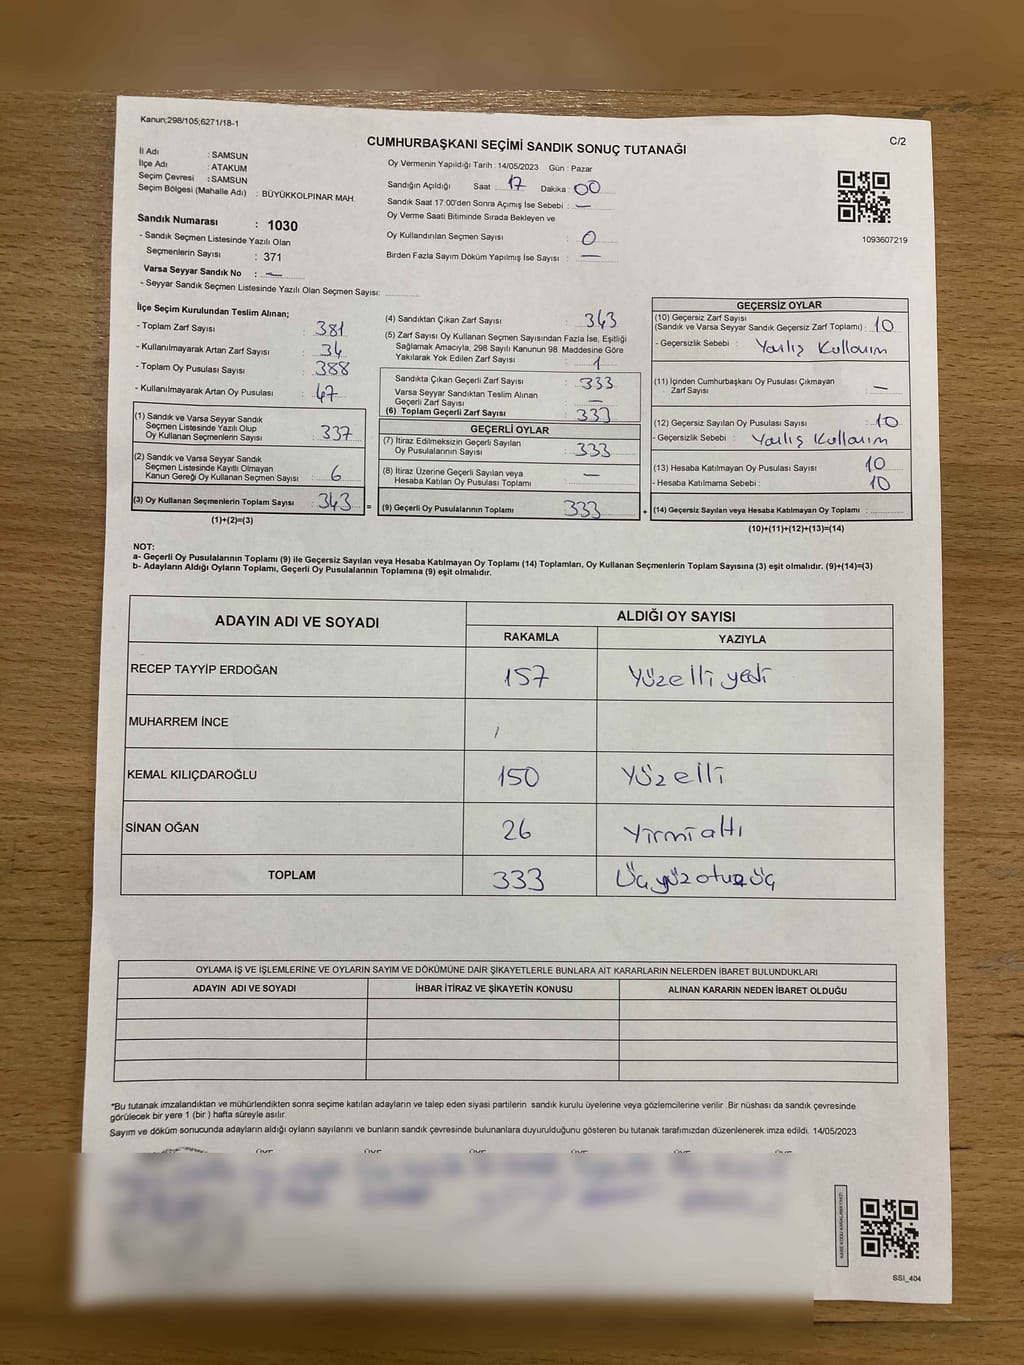 Kanun;298/105;6271/18-1
C/2
CUMHURBAŞKANI SEÇİMİ SANDIK SONUÇ TUTANAĞI
İl Adı : SAMSUN
İlçe Adı : ATAKUM
Seçim Çevresi : SAMSUN
Seçim Bölgesi (Mahalle Adı) : BÜYÜKKOLPINAR MAH.
Oy Vermenin Yapıldığı Tarih : 14/05/2023 Gün : Pazar
Sandığın Açıldığı Saat : 17 Dakika : 00
Sandık Saat 17:00'den Sonra Açımış İse Sebebi : —
Oy Verme Saati Bitiminde Sırada Bekleyen ve
Oy Kullandırılan Seçmen Sayısı : 0
Birden Fazla Sayım Döküm Yapılmış İse Sayısı : —
1093607219
Sandık Numarası : 1030
- Sandık Seçmen Listesinde Yazılı Olan
Seçmenlerin Sayısı : 371
Varsa Seyyar Sandık No : —
- Seyyar Sandık Seçmen Listesinde Yazılı Olan Seçmen Sayısı:
İlçe Seçim Kurulundan Teslim Alınan;
- Toplam Zarf Sayısı : 381
- Kullanılmayarak Artan Zarf Sayısı : 34
- Toplam Oy Pusulası Sayısı : 388
- Kullanılmayarak Artan Oy Pusulası : 47
(1) Sandık ve Varsa Seyyar Sandık
Seçmen Listesinde Yazılı Olup
Oy Kullanan Seçmenlerin Sayısı : 337
(2) Sandık ve Varsa Seyyar Sandık
Seçmen Listesinde Kayıtlı Olmayan
Kanun Gereği Oy Kullanan Seçmen Sayısı : 6
(3) Oy Kullanan Seçmenlerin Toplam Sayısı : 343 =
(1)+(2)=(3)
(4) Sandıktan Çıkan Zarf Sayısı : 343
(5) Zarf Sayısı Oy Kullanan Seçmen Sayısından Fazla İse, Eşitliği
Sağlamak Amacıyla, 298 Sayılı Kanunun 98. Maddesine Göre
Yakılarak Yok Edilen Zarf Sayısı : 1
Sandıkta Çıkan Geçerli Zarf Sayısı : 333
Varsa Seyyar Sandıktan Teslim Alınan
Geçerli Zarf Sayısı : —
(6) Toplam Geçerli Zarf Sayısı : 333
GEÇERLİ OYLAR
(7) İtiraz Edilmeksizin Geçerli Sayılan
Oy Pusulalarının Sayısı : 333
(8) İtiraz Üzerine Geçerli Sayılan veya
Hesaba Katılan Oy Pusulası Toplamı : —
(9) Geçerli Oy Pusulalarının Toplamı : 333 +
GEÇERSİZ OYLAR
(10) Geçersiz Zarf Sayısı
(Sandık ve Varsa Seyyar Sandık Geçersiz Zarf Toplamı) : 10
- Geçersizlik Sebebi : Yanlış Kullanım
(11) İçinden Cumhurbaşkanı Oy Pusulası Çıkmayan
Zarf Sayısı : —
(12) Geçersiz Sayılan Oy Pusulası Sayısı : 10
- Geçersizlik Sebebi : Yanlış Kullanım
(13) Hesaba Katılmayan Oy Pusulası Sayısı : 10
- Hesaba Katılmama Sebebi : 10
(14) Geçersiz Sayılan veya Hesaba Katılmayan Oy Toplamı :
(10)+(11)+(12)+(13)=(14)
NOT:
a- Geçerli Oy Pusulalarının Toplamı (9) ile Geçersiz Sayılan veya Hesaba Katılmayan Oy Toplamı (14) Toplamları, Oy Kullanan Seçmenlerin Toplam Sayısına (3) eşit olmalıdır. (9)+(14)=(3)
b- Adayların Aldığı Oyların Toplamı, Geçerli Oy Pusulalarının Toplamına (9) eşit olmalıdır.
ADAYIN ADI VE SOYADI ALDIĞI OY SAYISI
RAKAMLA YAZIYLA
RECEP TAYYİP ERDOĞAN 157 Yüzelli yedi
MUHARREM İNCE /
KEMAL KILIÇDAROĞLU 150 Yüzelli
SİNAN OĞAN 26 Yirmi altı
TOPLAM 333 Üçyüz otuz üç
OYLAMA İŞ VE İŞLEMLERİNE VE OYLARIN SAYIM VE DÖKÜMÜNE DAİR ŞİKAYETLERLE BUNLARA AİT KARARLARIN NELERDEN İBARET BULUNDUKLARI
ADAYIN ADI VE SOYADI İHBAR İTİRAZ VE ŞİKAYETİN KONUSU ALINAN KARARIN NEDEN İBARET OLDUĞU
*Bu tutanak imzalandıktan ve mühürlendikten sonra seçime katılan adayların ve talep eden siyasi partilerin sandık kurulu üyelerine veya gözlemcilerine verilir .Bir nüshası da sandık çevresinde
görülecek bir yere 1 (bir ) hafta süreyle asılır.
Sayım ve döküm sonucunda adayların aldığı oyların sayılarını ve bunların sandık çevresinde bulunanlara duyurulduğunu gösteren bu tutanak tarafımızdan düzenlenerek imza edildi. 14/05/2023
SSI_404